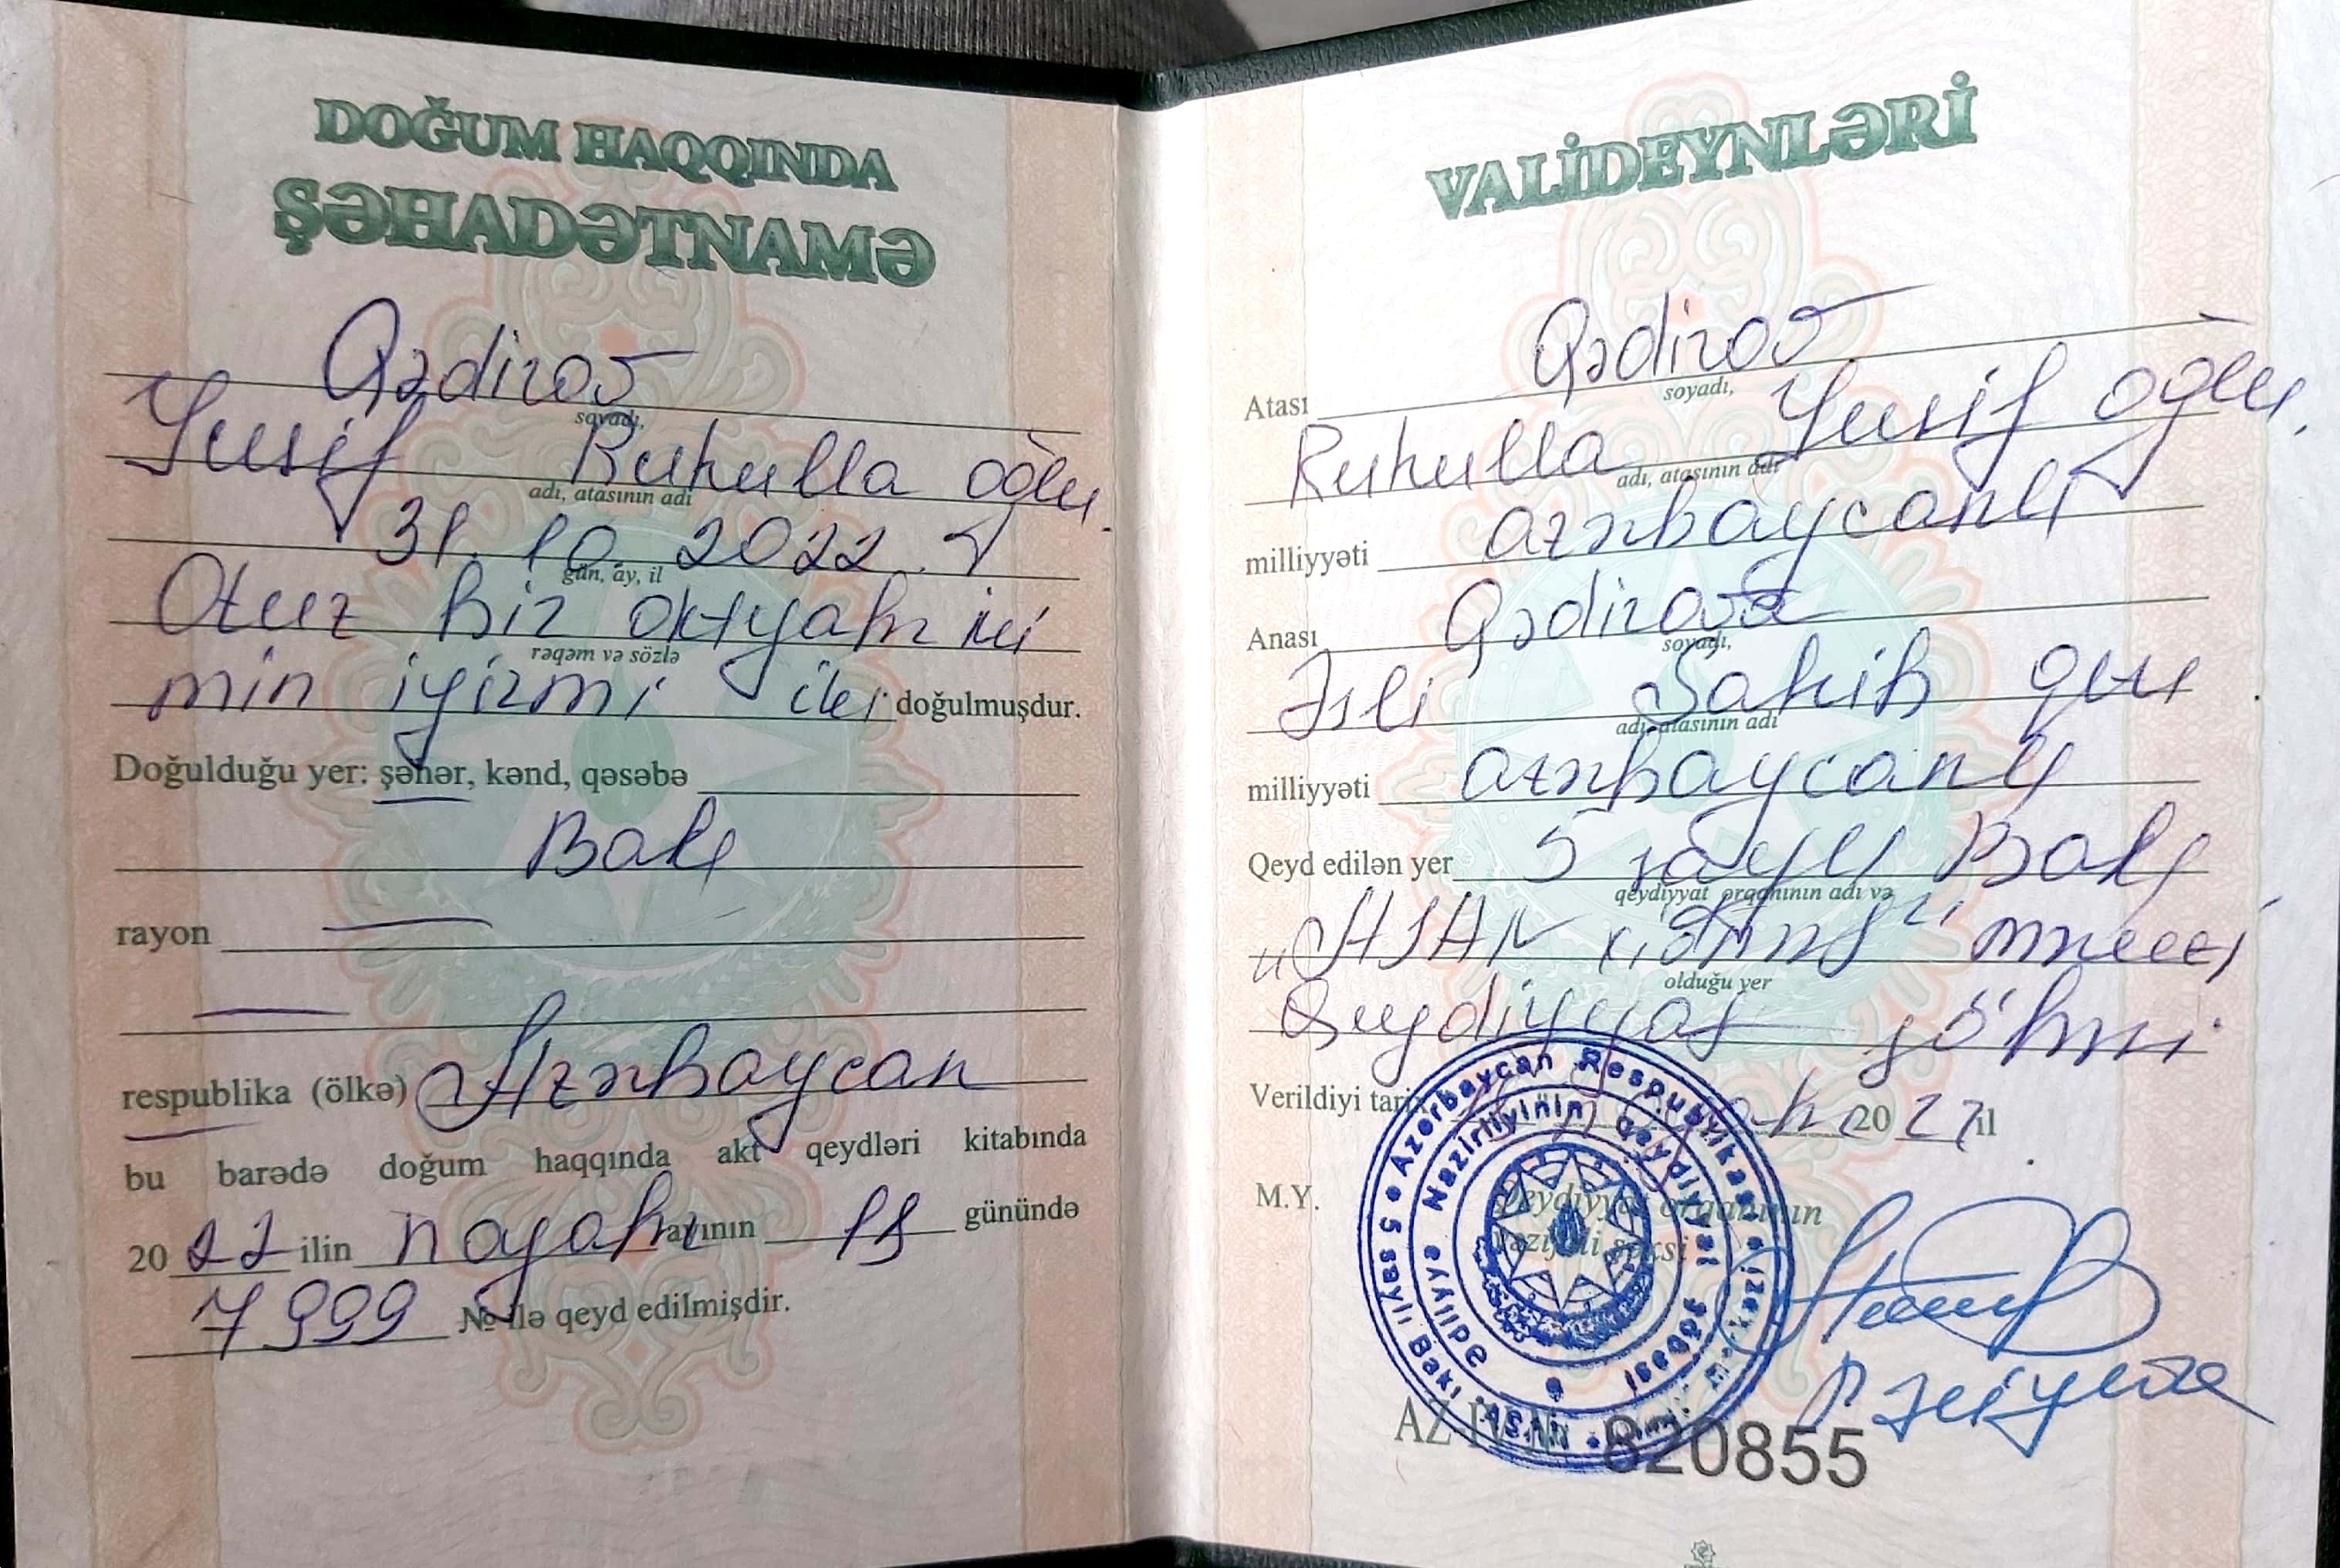 DOĞUM HAQQINDA
ŞƏHADƏTNAMƏ
Qədirov
soyadı,
Yusif Ruhulla oğlu.
adı, atasının adı
31.10.2022.
gün, ay, il
Otuz bir oktyabr iki
rəqəm və sözlə
min iyirmi iki doğulmuşdur.
Doğulduğu yer: şəhər, kənd, qəsəbə
Bakı
rayon —
—
respublika (ölkə) Azərbaycan
bu barədə doğum haqqında akt qeydləri kitabında
20 22 ilin noyabr ayının günündə
7999 № ilə qeyd edilmişdir.
VALİDEYNLƏRİ
Qədirov
Atası
soyadı,
Ruhulla Yusif oğlu.
adı, atasının adı
milliyyəti azərbaycanlı
Anası Qədirova
soyadı,
Əsli Sahib qızı
adı, atasının adı
milliyyəti azərbaycanlı
Qeyd edilən yer 5 saylı Bakı
qeydiyyat orqanının adı və
"ASAN xidmət" mərkəzi
olduğu yer
Qeydiyyat şöbəsi
Verildiyi tarix noyabr 20 22 il
M.Y. Qeydiyyat orqanının
vəzifəli şəxsi
Azərbaycan Respublikası
Ədliyyə Nazirliyinin Qeydiyyat şöbəsi
5 saylı Bakı
AZ-IV № 820855